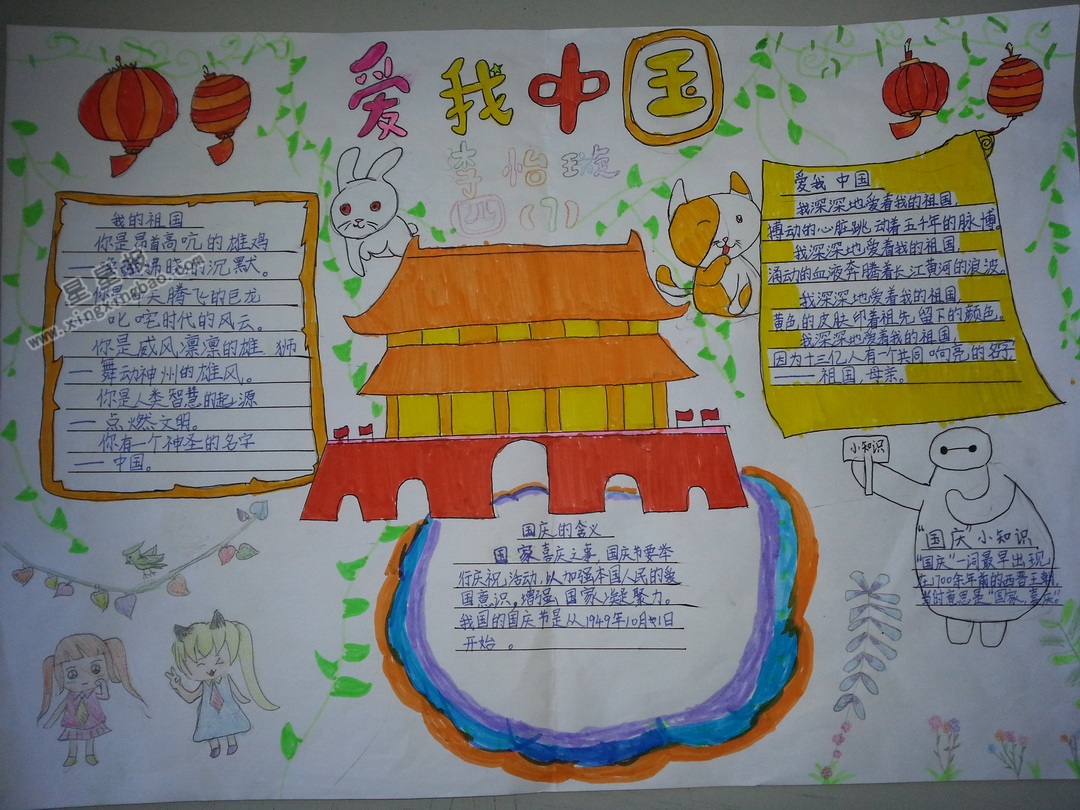 爱我中国
李怡璇
四(7)
我的祖国
你是昂首高亢的雄鸡
——唤醒拂晓的沉默。
你是冲天腾飞的巨龙
叱咤时代的风云。
你是威风凛凛的雄狮
—舞动神州的雄风。
你是人类智慧的起源
—点燃文明。
你有一个神圣的名字
—中国。
星星报
www.xingxingbao.com
爱我中国
我深深地爱着我的祖国,
搏动的心脏跳动着五千年的脉搏。
我深深地爱着我的祖国,
涌动的血液奔腾着长江黄河的浪波。
我深深地爱着我的祖国,
黄色的皮肤印着祖先留下的颜色。
我深深地爱着我的祖国,
因为十三亿人有一个共同响亮的名字
——祖国,母亲。
国庆的含义
国家喜庆之事,国庆节要举
行庆祝,活动,以加强本国人民的爱
国意识,增强,国家凝聚力。
我国的国庆节是从1949年10月1日
开始。
小知识
“国庆”小知识
“国庆”一词最早出现,
在1700余年前的西晋王朝,
当时意思是“国家喜庆”。